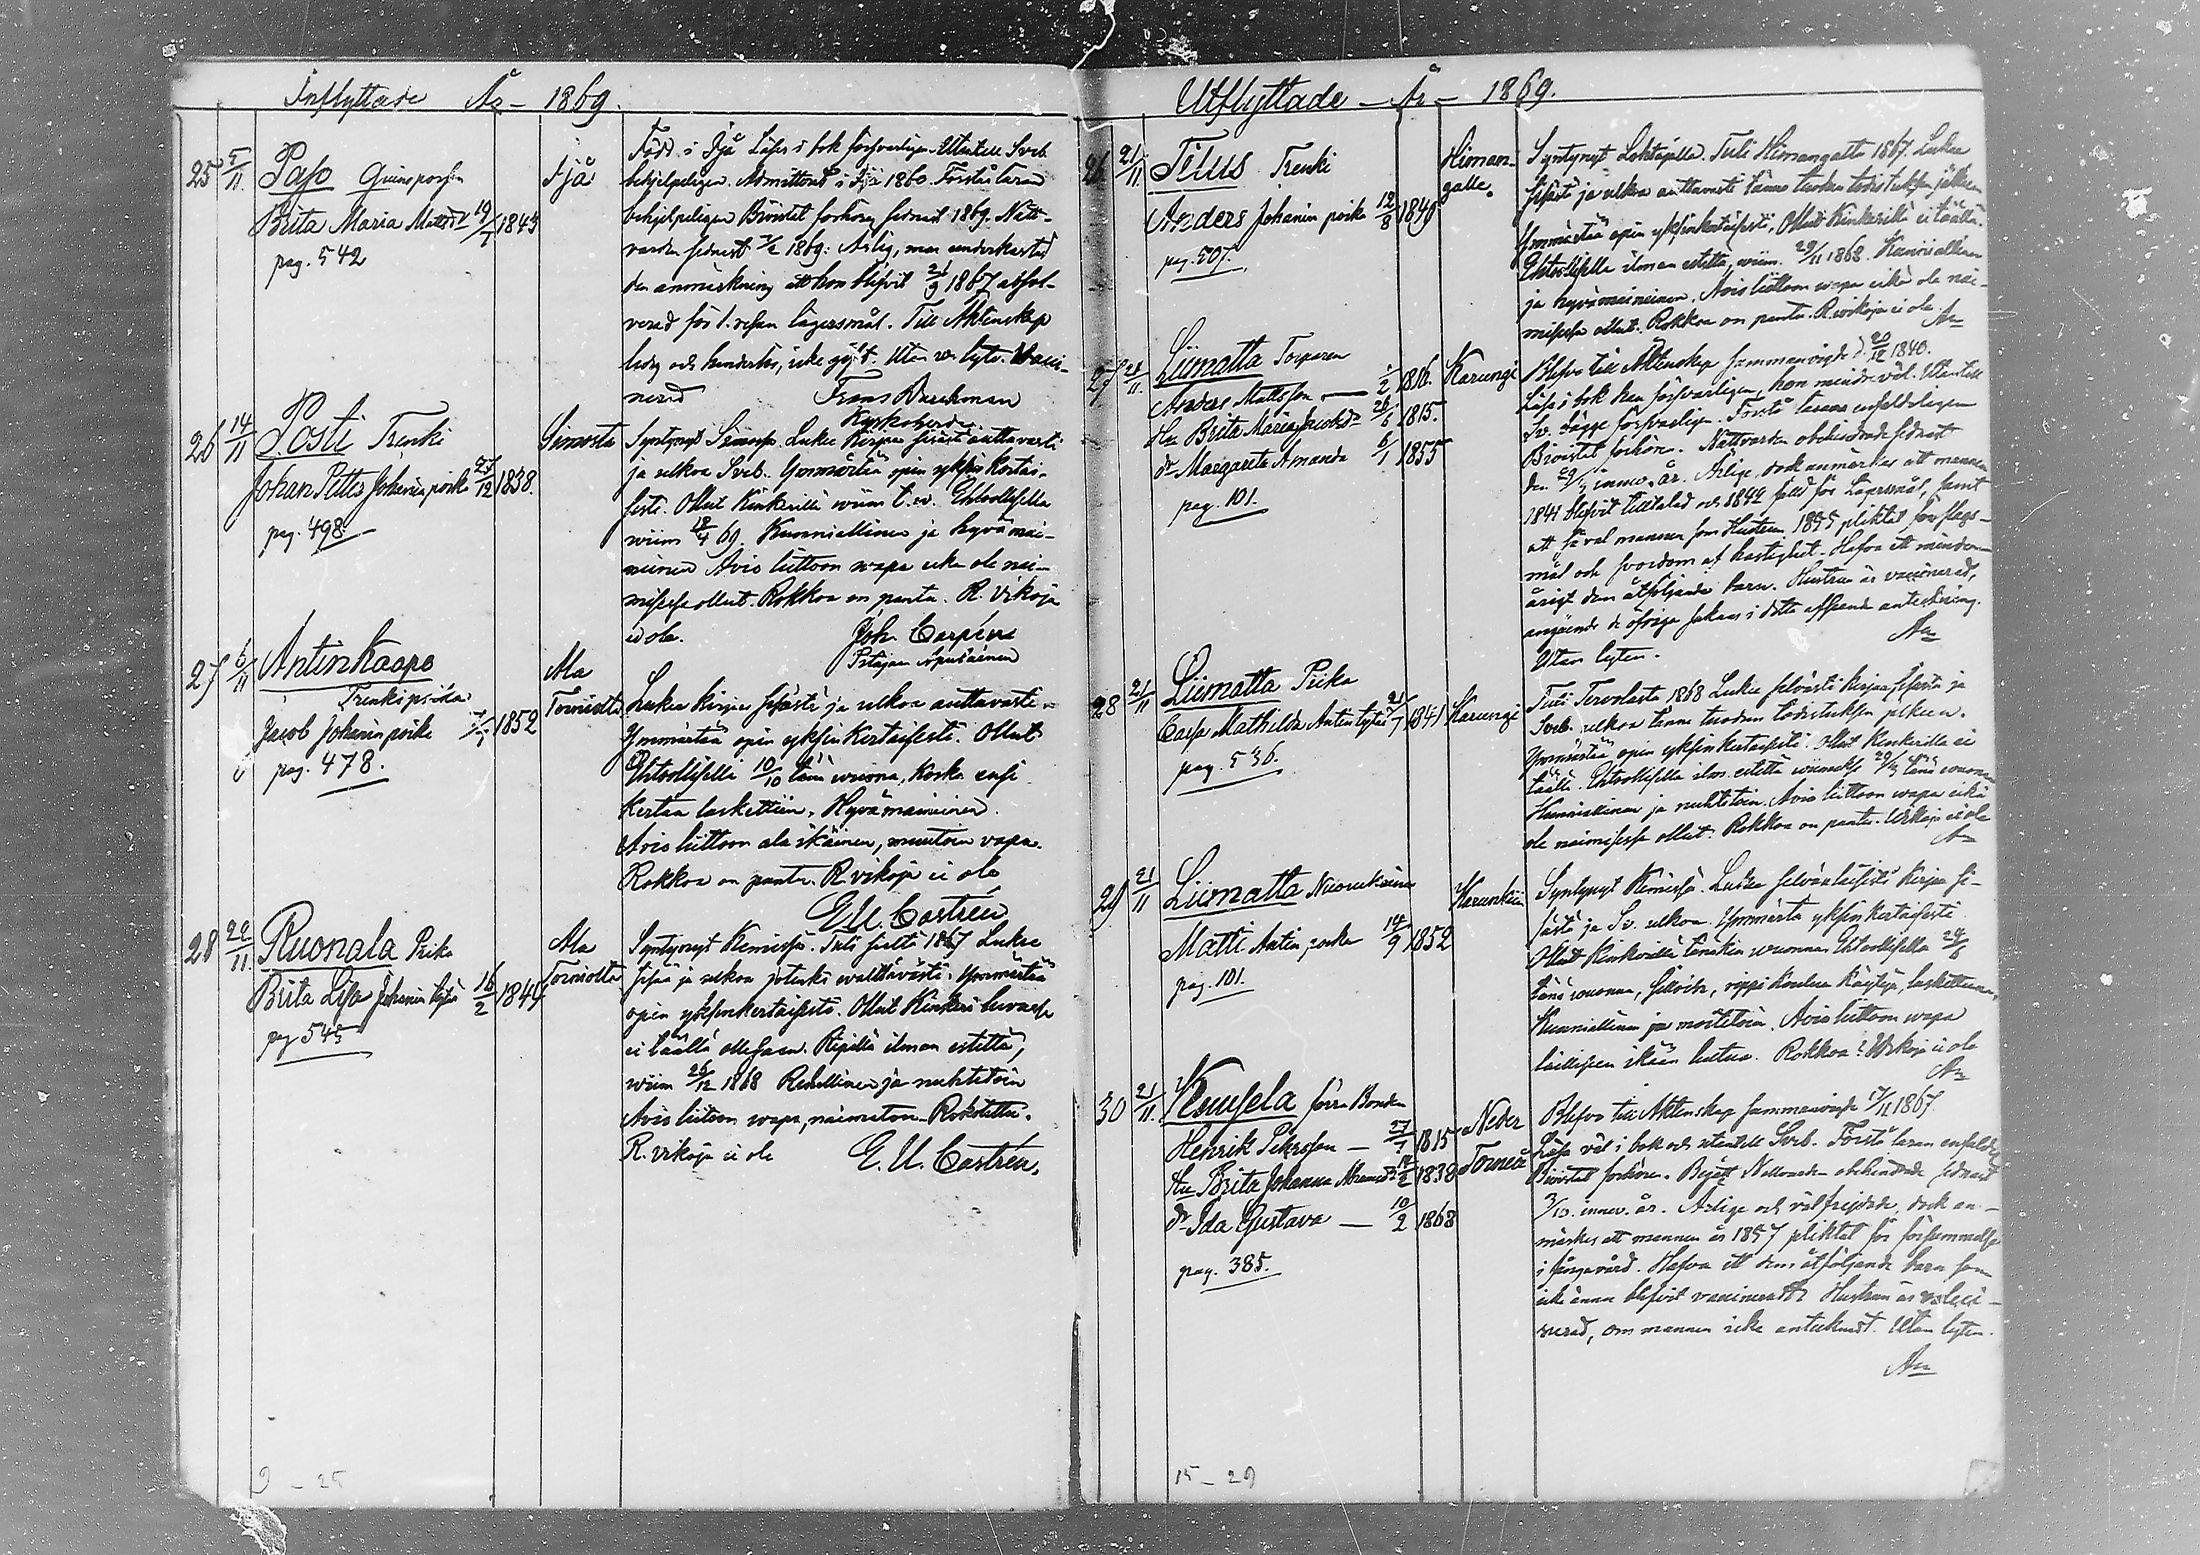 Inflyttade År - 1869.
25 5/11 Paso Qvinsperson
Brita Maria Mattsd:r 19/7 1843
pag. 542
Ijå
Född i Ijå Läser i bok försvarligen Utantill Sveb.
behjelpeligen. Admitterad i Ijå 1860. Förstår läran
behjelpeligen Bivistat förhören sednast 1869. Natt-
varden sednast 1869: Ärlig, men underkastad
den anmärkning att hon blifvit 21/9 1867 absol-
verad för 1. resan lägersmål. Till Äktenskap
ledig och hinderlös, icke gift. Utan lyte. Vacci-
nerad Frans Durchman
Kyrkoherde
26 14/11 Posti Trenki
Johan Petter Johanin poika 27/12 1838.
pag. 498
Simosta
Syntynyt Simossa. Lukee Kirjaa sisästi auttavasti
ja ulkoa Sveb. Ymmärtää opin yksin kertai-
sesti. Ollut Kinkerillä viim t. v. Ehtoollisella
wiim 18/4 69. Kunniallinen ja hyvämai-
neinen Avio liittoon wapa eikä ole nai-
misessa ollut. Rokkoa on pantu. R. vikoja
ei ole. Joh. Carpén
Pitäjän Apulainen
27 6/11 Antinkaapo
Trenkipoika
Jacob Johanin poika 1852
pag. 478.
Ala
Torniosta
Lukee kirjaa sisästi ja ulkoa auttavasti.
Ymmärtää opin yksin kertaisesti. Ollut
Ehtoollisella 10/10 tänä wuonna, koska ensi
kertaa laskettiin. Hyvämaineinen.
Avio liittoon ala ikäinen, muutoin vapa.
Rokkoa on pantu. R vikoja ei ole
E. U. Castrén
28 20/11 Ruonala Piika
Brita Lisa Johanin tytär 16/2 1844
pag 545
Ala
Torniosta
Syntynyt Kemissä. Tuli sieltä 1867 Lukee
sisää ja ulkoa jotenki wälttävästi. Ymmärtää
opin yksinkertaisesti. Ollut Kinkeri luvussa
ei täällä ollessaan. Ripillä ilman estettä,
wiim 26/12 1868 Rehellinen ja nuhtetoin
Avio liitoon wapa, naimaton. Rokotettu.
R. vikoja ei ole E. U. Castrén.
2 - 25
Utflyttade - År - 1869.
26 21/11 Titus Trenki
Anders Johanin poika 12/8 1840
pag. 507.
Himan-
galle.
Syntynyt Lohtajalla. Tuli Himangalta 1867. Lukee
sisästä ja ulkoa auttavasti tänne tuodun todistuksen jälkeen
Ymmärtää opin yksinkertaisesti. Ollut Kinkerillä ei täällä.
Ehtoollisella ilman estettä, wiim. 29/11 1868. Kunniallinen
ja hyvämaineinen. Avio liittoon wapa eikä ole nai-
misessa ollut. Rokkoa on pantu. R. vikoja ei ole
27 21/11 Liimatta Torparen
Anders Mattsson 1/2 1816.
Hu Brita Maria Jacobsdr 26/6 1815.
dr Margareta Amanda 6/1 1855
pag. 101.
Karungi
Blefvo till Äktenskap sammanvigde d. 20/12 1840.
Läsa i bok han försvarligen, hon mindre väl. Utantill
Sv. bägge försvarligen. Förstå läran enfaldeligen
Bivistat förhören. Nattvarden obehindrade sednast
den innev. år. Ärlige, dock anmärkes att mannen
1841 blifvit tilltalad och 1842 fälld för Lägersmål, samt
att så väl mannen som Hustrun 1855 pliktat för slags-
mål och svordom af hastighet. Hafva ett minder-
årigt dem åtföljande barn. Hustrun är vaccinerad,
angående de öfriga saknas i detta afseende anteckning.
Utan lyten.
28 21/11 Liimatta Piika
Caisa Mathilda Antin tytär 21/7 1841
pag. 536.
Karungi
Tuli Tervolasta 1868 Lukee selvästi kirjaa sisästä ja
Sveb. ulkoa tänne tuodun todistuksen jälkeen.
Ymmärtää opin yksinkertaisesti. Ollut Kinkerillä ei
täällä. Ehtoollisella ilm. estettä wiimeksi tänä vuonna
Kunniallinen ja nuhtetoin. Avio liittoon wapa eikä
ole naimisessa ollut. Rokkoa on pantu. Vikoja ei ole
29 21/11 Liimatta Nuorukainen
Matti Antin poika 14/9 1852
pag. 101.
Karunkiin
Syntynyt Kemissä. Lukee selvänlaisesti kirjaa si-
sästä ja Sv. ulkoa. Ymmärtä yksinkertaisesti
Ollut Kinkerillä tänäkin wuonna. Ehtoollisella
tänä wuonna, silloin, rippi koulua käytyä, laskettuna.
Kunniallinen ja moitetoin. Avio liittoon wapa
laillisen ikään tultua. Rokkoa? Vikoja ei ole
30 21/11 Kemsela förra Bonden
Henrik Pekrsson - 27/7 1815
Hu Brita Johanna Abramsdr 14/2 1838
dr Ida Gustava - 10/2 1868
pag. 385.
Neder
Torneå
Blefvo till Äktenskap sammanvigde 1867.
Läsa väl i bok och utantill Sveb. Förstå läran enfaldigt
Bivistat förhören. Begått Nattvarden obehindrade sednast
3/10. innev. år. Ärlige och välfrejdade, dock an-
märkes att mannen år 1857 pliktat för försummelse
i fångevård. Hafva ett dem åtföljande barn som
icke ännu blifvit vaccineradt. Hustrun är vacci-
nerad, om mannen icke antecknadt. Utan lyten.
15 - 29